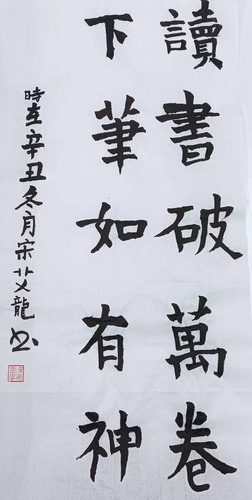 讀書破萬卷
下筆如有神
時在辛丑冬月宋艾龍書